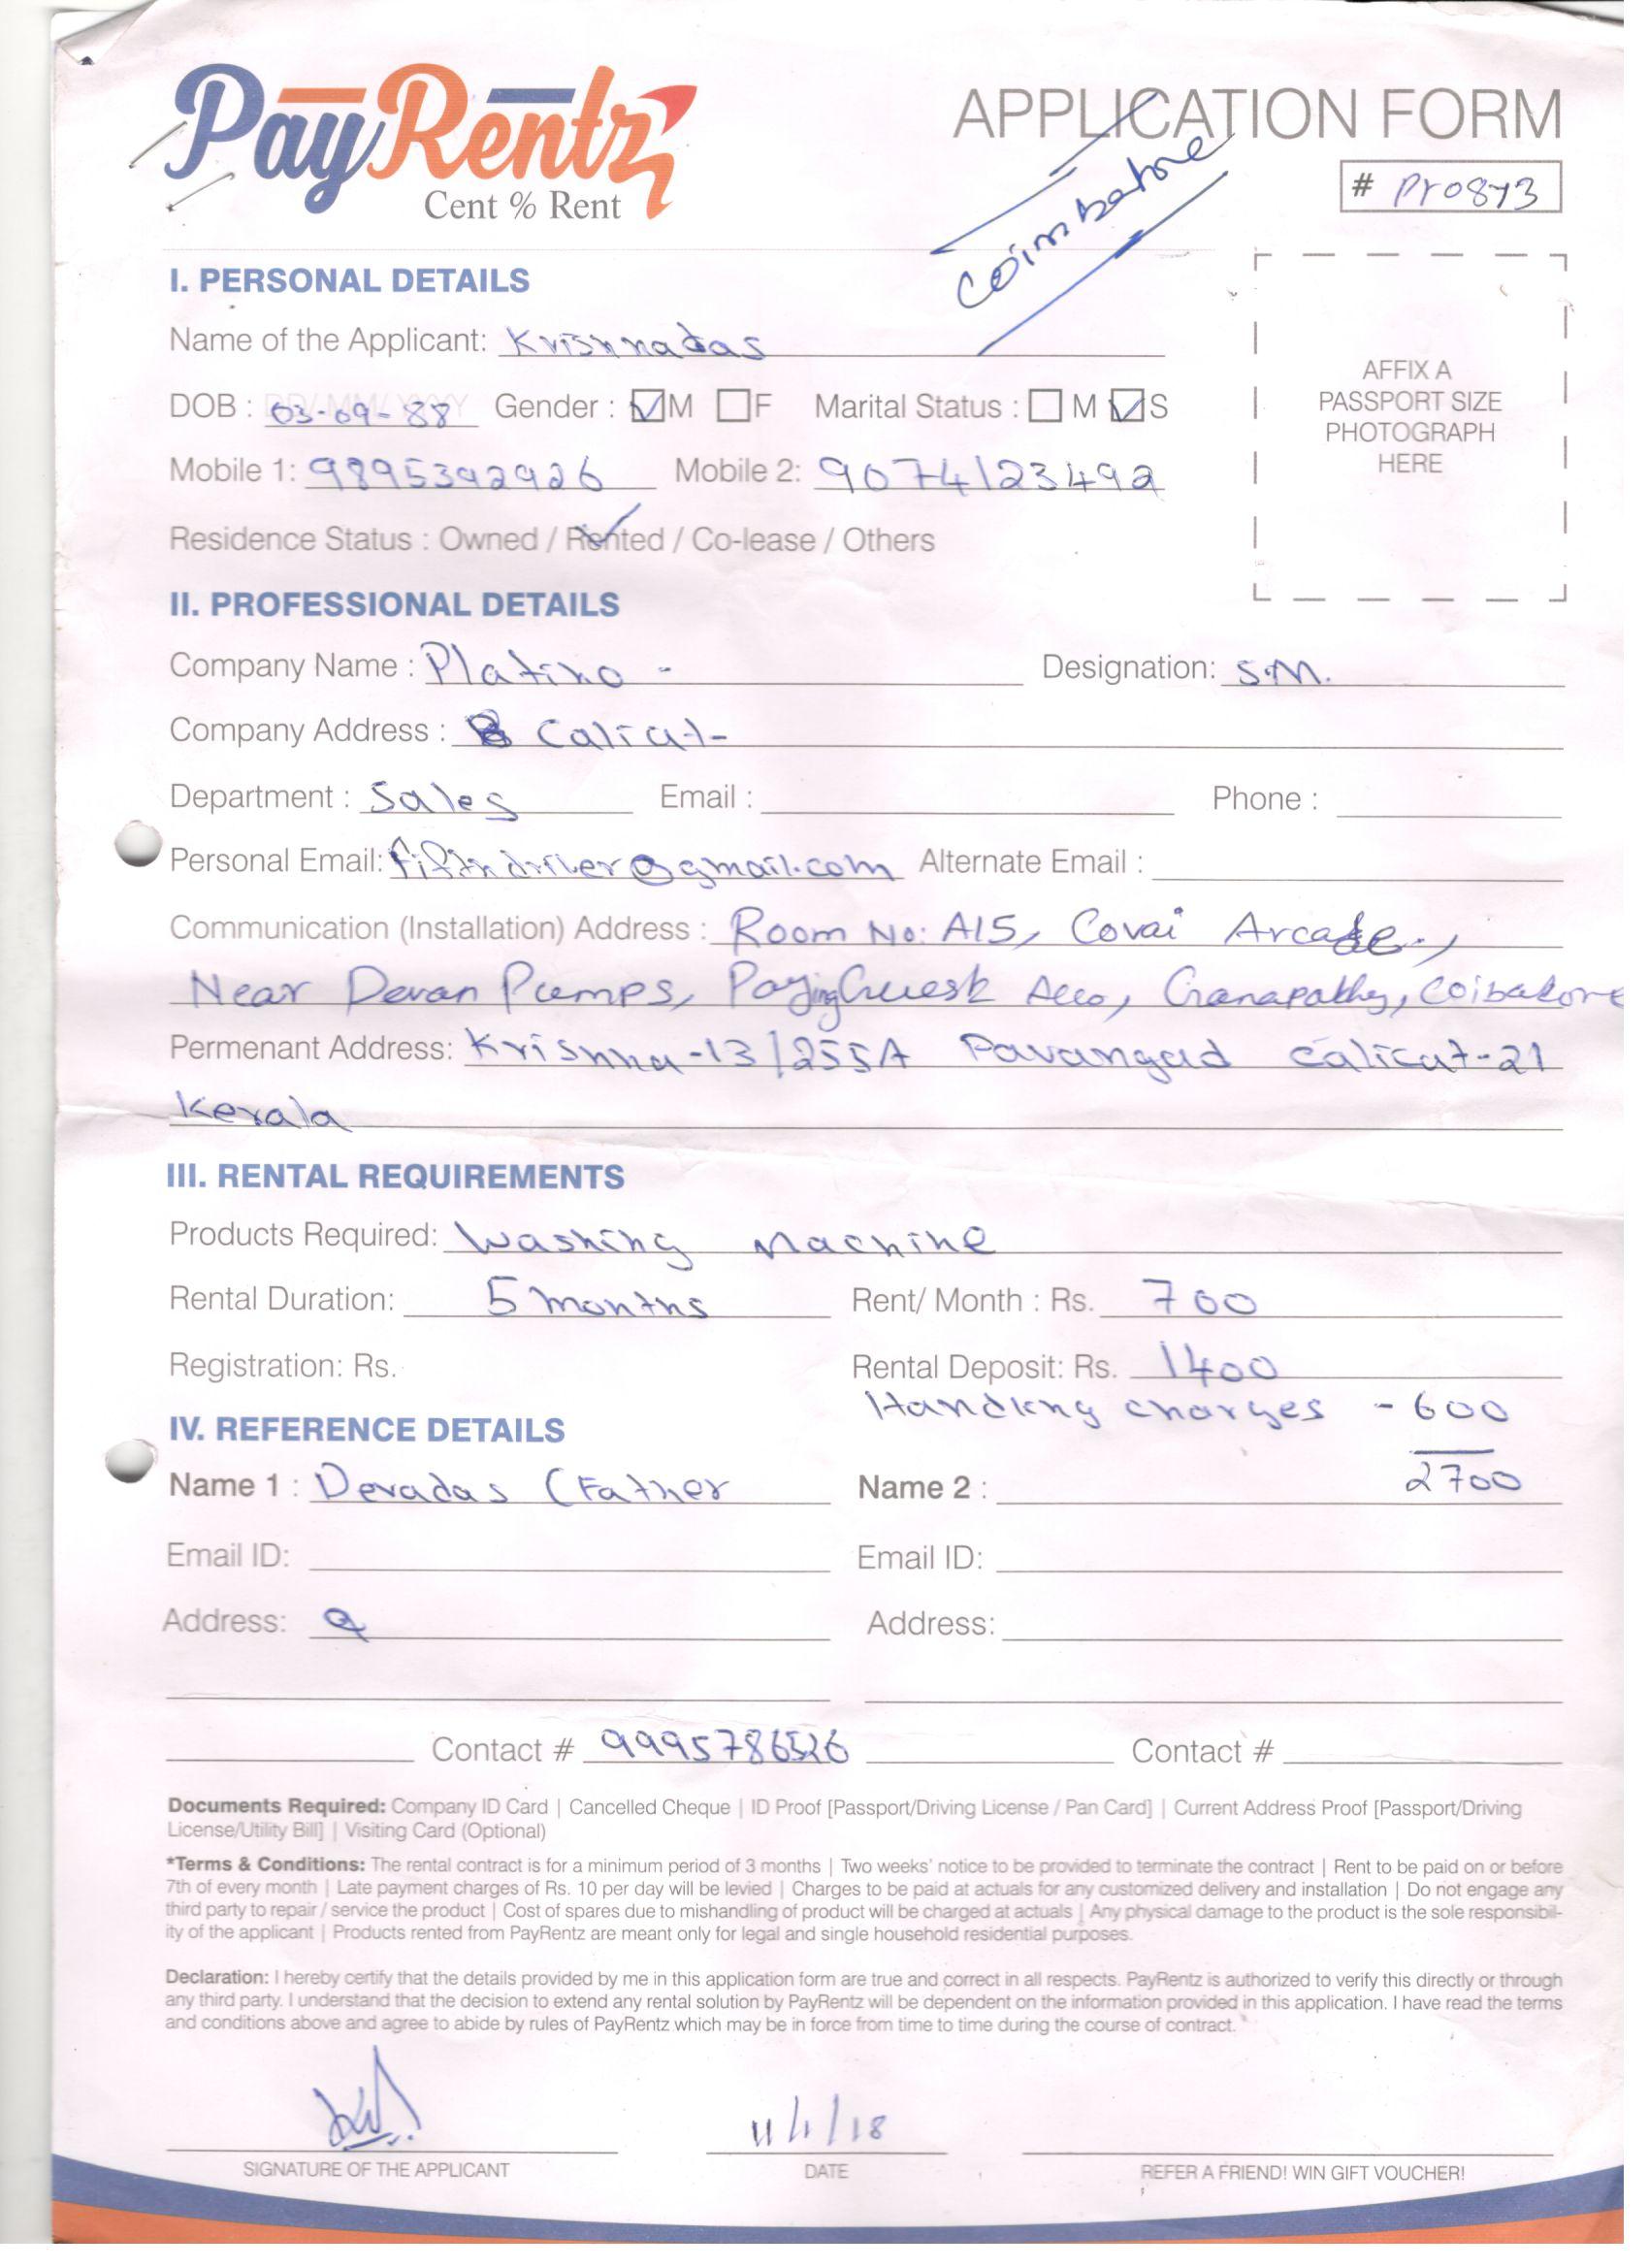 PayRentz
Cent % Rent
APPLICATION FORM
# Pr0873
Coimbatore
I. PERSONAL DETAILS
Name of the Applicant: Krishnadas
DOB : 03-09-88 Gender : M F Marital Status : M S
Mobile 1: 9895392926 Mobile 2: 9074123492
Residence Status : Owned / Rented / Co-lease / Others
AFFIX A
PASSPORT SIZE
PHOTOGRAPH
HERE
II. PROFESSIONAL DETAILS
Company Name : Platino - Designation: S.M.
Company Address : Calicut
Department : Sales Email : Phone :
Personal Email: @gmail.com Alternate Email :
Communication (Installation) Address : Room No: A15, Covai Arcade.,
Near Devan Pumps, Paying Guest Acco, Ganapathy, Coibatore
Permenant Address: Krishna-13/255A Pavangad Calicut-21
Kerala
III. RENTAL REQUIREMENTS
Products Required: Washing Machine
Rental Duration: 5 months Rent/ Month : Rs. 700
Registration: Rs. Rental Deposit: Rs. 1400
Handling charges - 600
2700
IV. REFERENCE DETAILS
Name 1 : Devadas (Father Name 2 :
Email ID: Email ID:
Address: Address:
Contact # 9995786526 Contact #
Documents Required: Company ID Card | Cancelled Cheque | ID Proof [Passport/Driving License / Pan Card] | Current Address Proof [Passport/Driving
License/Utility Bill] | Visiting Card (Optional)
*Terms & Conditions: The rental contract is for a minimum period of 3 months | Two weeks' notice to be provided to terminate the contract | Rent to be paid on or before
7th of every month | Late payment charges of Rs. 10 per day will be levied | Charges to be paid at actuals for any customized delivery and installation | Do not engage any
third party to repair / service the product | Cost of spares due to mishandling of product will be charged at actuals | Any physical damage to the product is the sole responsibil-
ity of the applicant | Products rented from PayRentz are meant only for legal and single household residential purposes.
Declaration: I hereby certify that the details provided by me in this application form are true and correct in all respects. PayRentz is authorized to verify this directly or through
any third party. I understand that the decision to extend any rental solution by PayRentz will be dependent on the information provided in this application. I have read the terms
and conditions above and agree to abide by rules of PayRentz which may be in force from time to time during the course of contract.
11/1/18
SIGNATURE OF THE APPLICANT DATE REFER A FRIEND! WIN GIFT VOUCHER!